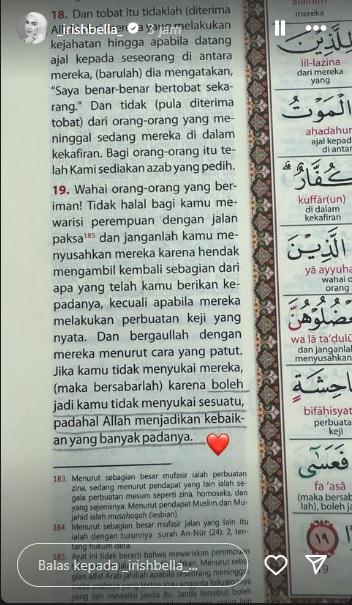 _irishbella_ 2 jam
18. Dan tobat itu tidaklah (diterima
yang melakukan
kejahatan hingga apabila datang
ajal kepada seseorang di antara
mereka, (barulah) dia mengatakan,
“Saya benar-benar bertobat seka-
rang.” Dan tidak (pula diterima
tobat) dari orang-orang yang me-
ninggal sedang mereka di dalam
kekafiran. Bagi orang-orang itu te-
lah Kami sediakan azab yang pedih.
19. Wahai orang-orang yang ber-
iman! Tidak halal bagi kamu me-
warisi perempuan dengan jalan
paksa¹⁸⁵ dan janganlah kamu me-
nyusahkan mereka karena hendak
mengambil kembali sebagian dari
apa yang telah kamu berikan ke-
padanya, kecuali apabila mereka
melakukan perbuatan keji yang
nyata. Dan bergaullah dengan
mereka menurut cara yang patut.
Jika kamu tidak menyukai mereka,
(maka bersabarlah) karena boleh
jadi kamu tidak menyukai sesuatu,
padahal Allah menjadikan kebaik-
an yang banyak padanya. ❤️
183. Menurut sebagian besar mufasir ialah perbuatan
zina, sedang menurut pendapat yang lain ialah se-
gala perbuatan mesum seperti zina, homoseks, dan
yang sejenisnya. Menurut pendapat Muslim dan Mu-
jahid ialah musahaqah (lesbian).
184. Menurut sebagian besar mufasir jalan yang lain itu
ialah dengan turunnya surah An-Nūr (24): 2, ten-
tang hukum dera.
185. Ayat ini tidak berarti bahwa mewariskan perempuan
mereka
لِلَّذِيْنَ
lil-lażīna
dari mereka
yang
الْمَوْتُ
aḥadahur
ajal kepad
di antar
كُفَّارٌ
kuffār(un)
di dalam
kekafiran
الَّذِيْنَ
yā ayyuha
wahai o
orang
wa lā ta‘ḍulū
dan janganlah
menyusahkan
بِفَاحِشَةٍ
bifāḥisyat
perbuata
keji
فَعَسٰٓى
fa ‘asā
(maka bersab
lah), boleh ja
١٩
Balas kepada _irishbella_...